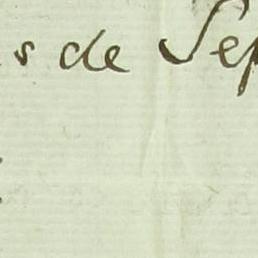 s de Sep